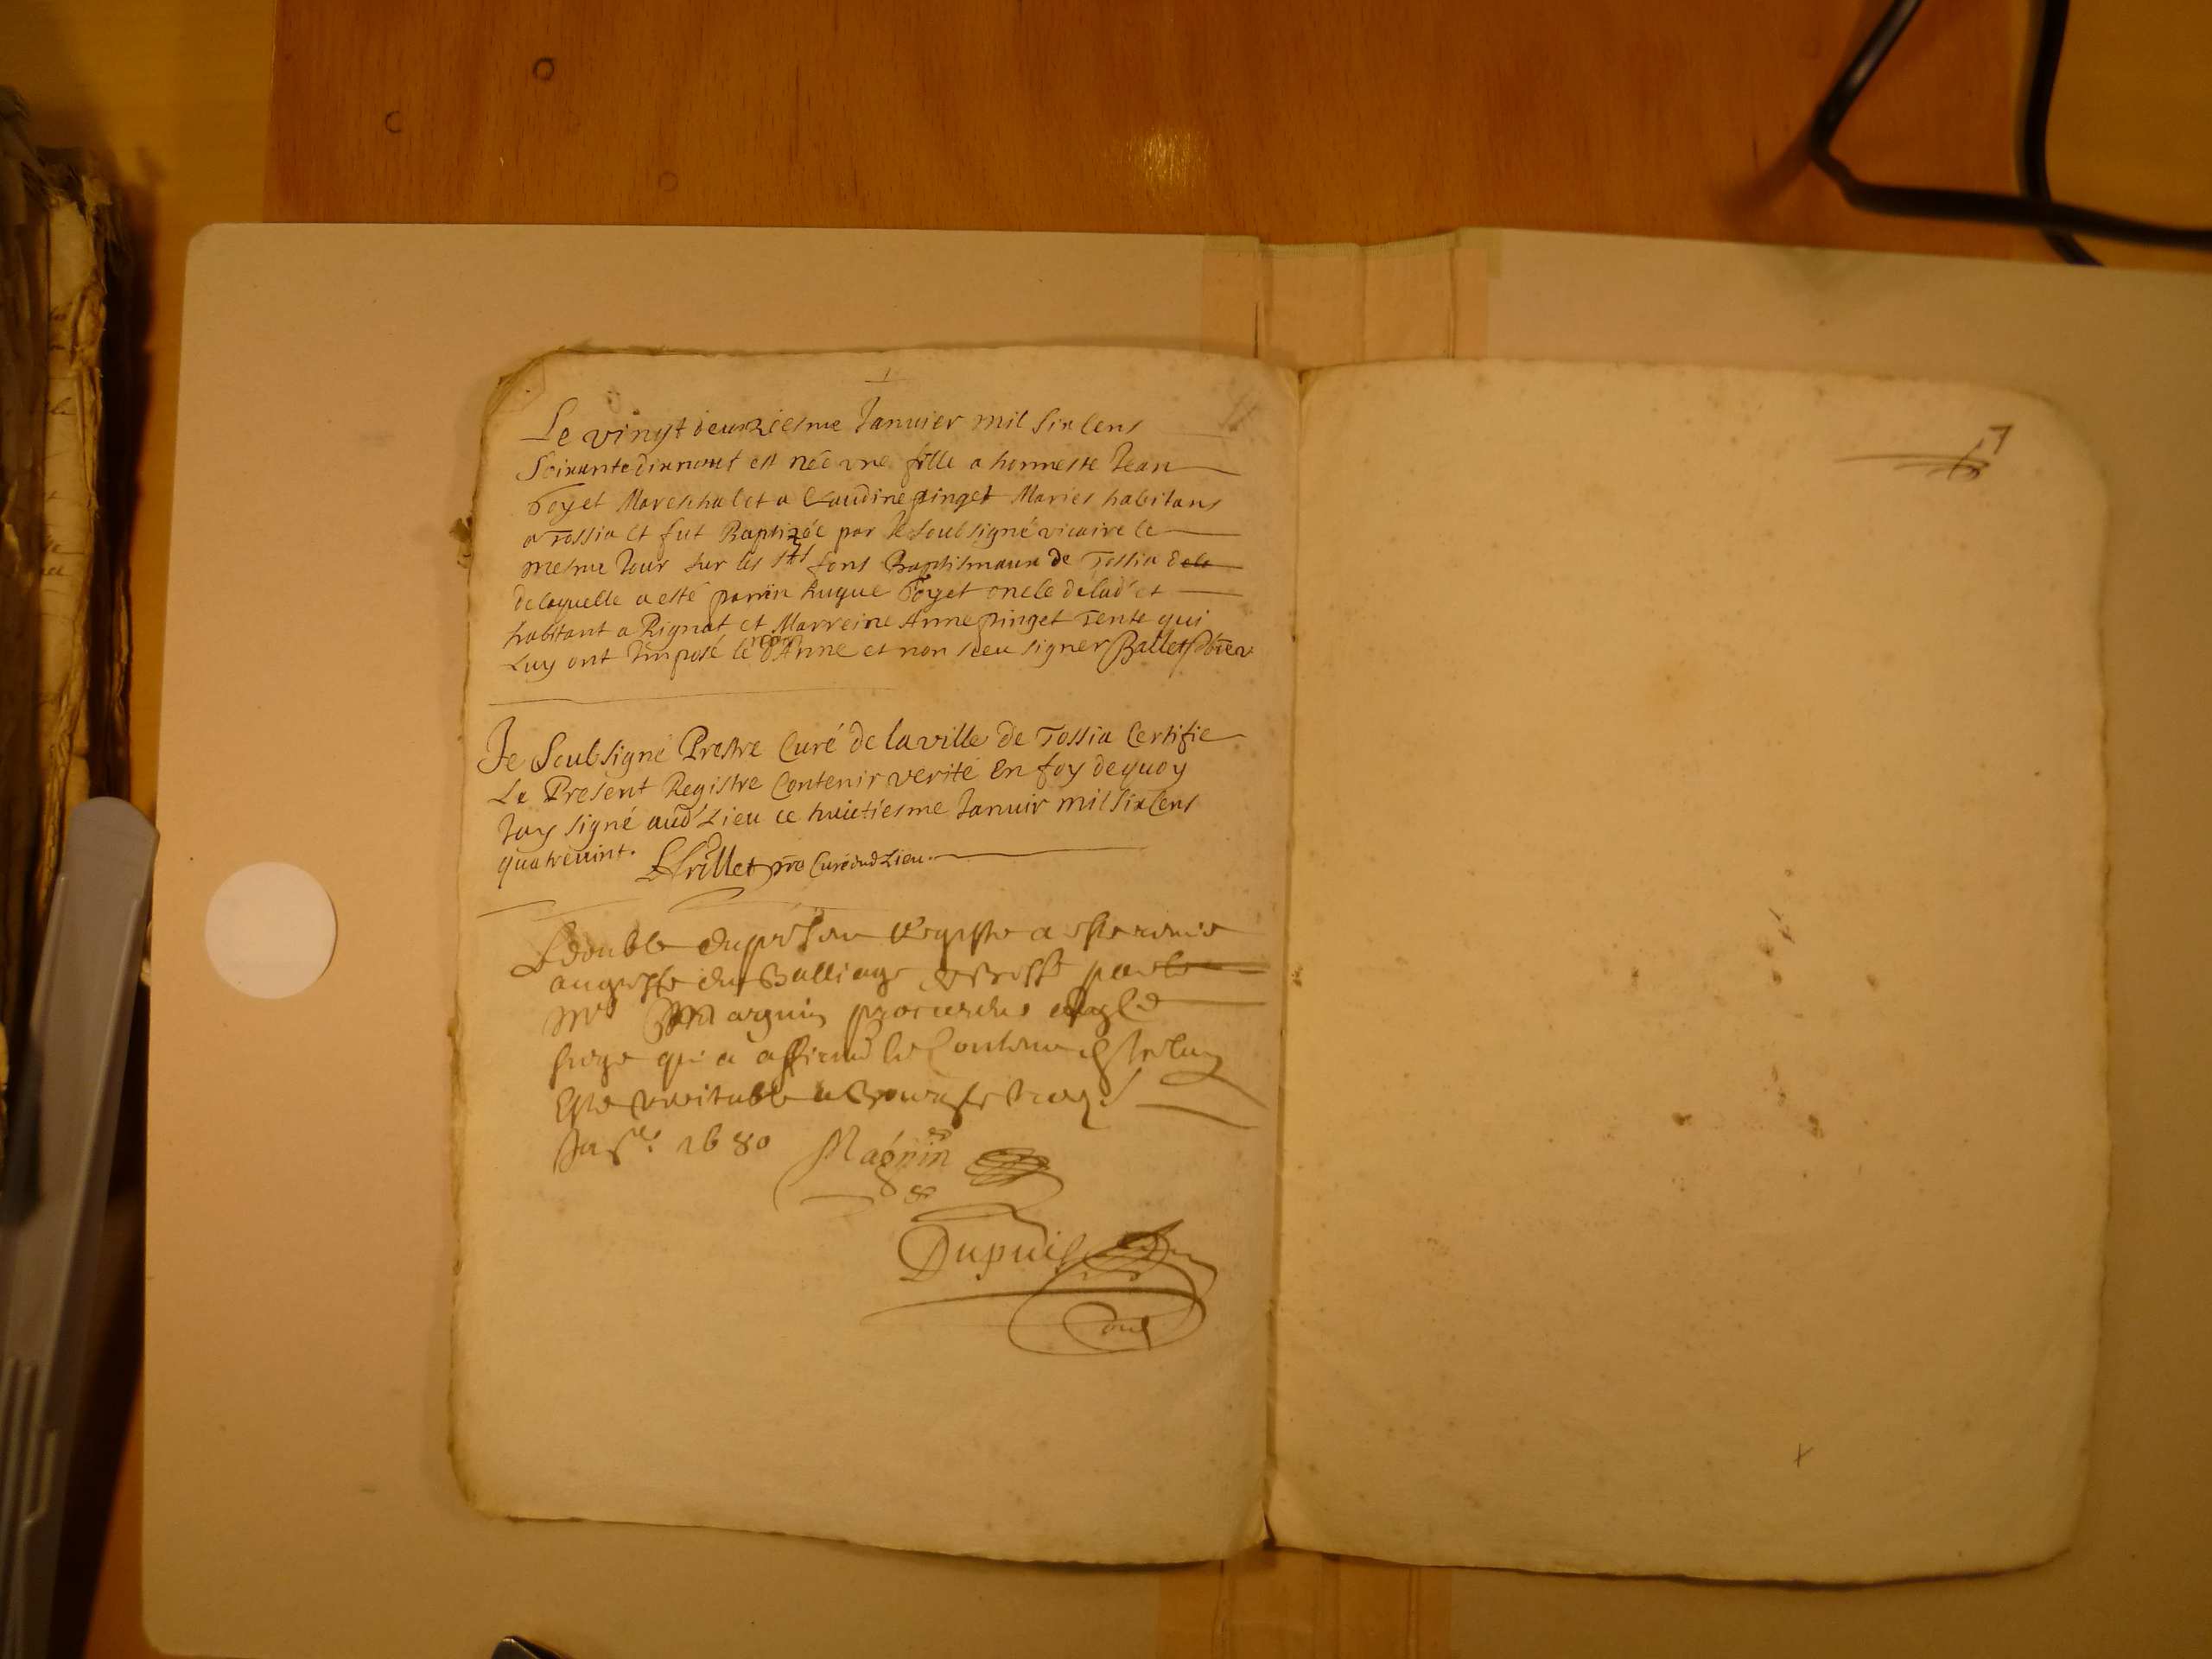 Le vingt deuxziesme Januier mil six Cens
Soixante dix noeuf est née vne fille a honneste Jean
Foyet Mareshal et a Claudine pinget Mariés habitans
a Tossia et fut Baptizée par le soubsigné vicaire le
mesme Jour sur les sts fons Baptismaux de Tossia
de laquelle a esté parrin hugue Foyet oncle de lad et
habitant a Rignat et Marreine Anne pinget Tente qui
Luy ont Imposé le nom d'Anne et non sceu signer Ballet
Je Soubsigné Prestre Curé de la ville de Tossia Certifie
Le Present Registre Contenir verité En foy dequoy
Jay signé aud Lieu ce huictiesme Januir mil six Cens
quatreuint. Frillet pre Curé dud Lieu.
Le double du present Registre a esté remis
au greffe du Balliage de Bresse par
Me Magnin procureur
siege qui a affirmé le Contenu
Estre veritable a Bourg
1680 Magnin
Dupuis
7